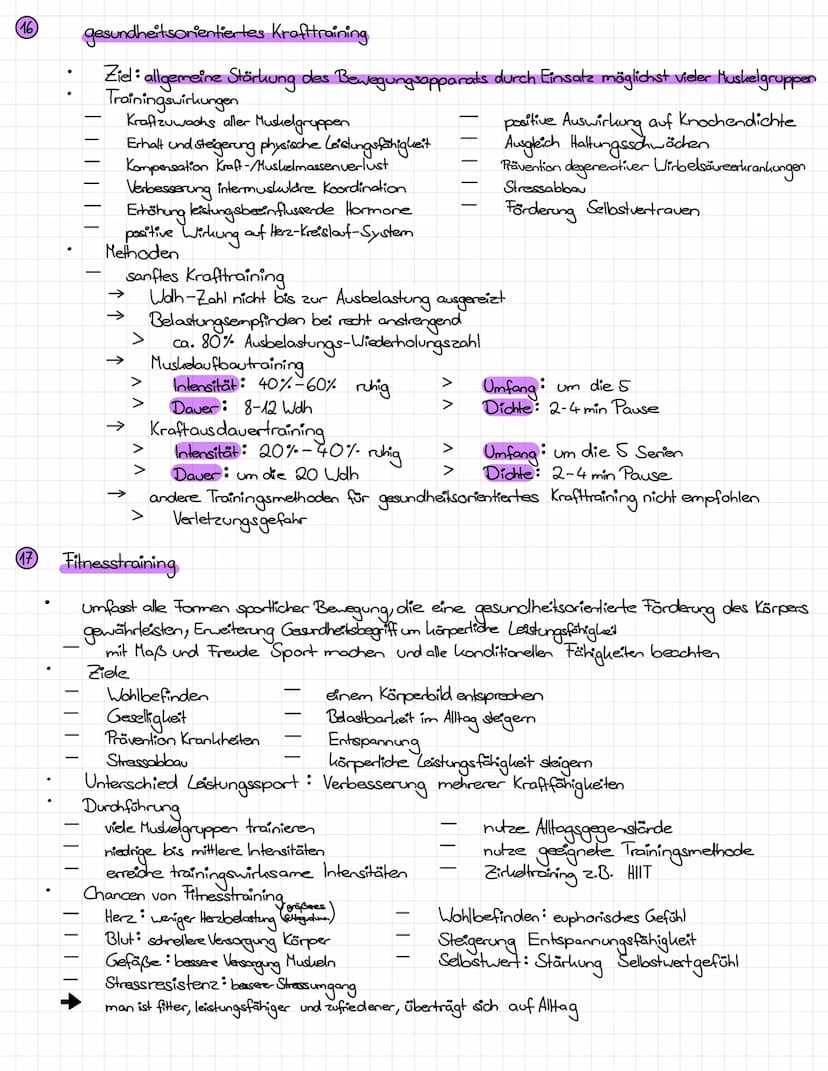 16 gesundheitsorientiertes Krafttraining
• Ziel: allgemeine Stärkung des Bewegungsapparats durch Einsatz möglichst vieler Muskelgruppen
• Trainingswirkungen
– Kraftzuwachs aller Muskelgruppen
– Erhalt und Steigerung physische Leistungsfähigkeit
– Kompensation Kraft-/Muskelmassenverlust
– Verbesserung intermuskuläre Koordination
– Erhöhung leistungsbeeinflussende Hormone
– positive Wirkung auf Herz-Kreislauf-System
– positive Auswirkung auf Knochendichte
– Ausgleich Haltungsschwächen
– Prävention degenerativer Wirbelsäulenerkrankungen
– Stressabbau
– Förderung Selbstvertrauen
• Methoden
– sanftes Krafttraining
→ Wdh-Zahl nicht bis zur Ausbelastung ausgereizt
→ Belastungsempfinden bei recht anstrengend
> ca. 80% Ausbelastungs-Wiederholungszahl
→ Muskelaufbautraining
> Intensität: 40%-60% ruhig > Umfang: um die 5
> Dauer: 8-12 Wdh > Dichte: 2-4 min Pause
→ Kraftausdauertraining
> Intensität: 20%-40% ruhig > Umfang: um die 5 Serien
> Dauer: um die 20 Wdh > Dichte: 2-4 min Pause
→ andere Trainingsmethoden für gesundheitsorientiertes Krafttraining nicht empfohlen
> Verletzungsgefahr
17 Fitnesstraining
• umfasst alle Formen sportlicher Bewegung, die eine gesundheitsorientierte Förderung des Körpers
gewährleisten, Erweiterung Gesundheitsbegriff um körperliche Leistungsfähigkeit
– mit Maß und Freude Sport machen und alle konditionellen Fähigkeiten beachten
• Ziele
– Wohlbefinden
– Geselligkeit
– Prävention Krankheiten
– Stressabbau
– einem Körperbild entsprechen
– Belastbarkeit im Alltag steigern
– Entspannung
– körperliche Leistungsfähigkeit steigern
• Unterschied Leistungssport: Verbesserung mehrerer Kraftfähigkeiten
• Durchführung
– viele Muskelgruppen trainieren
– niedrige bis mittlere Intensitäten
– erreiche trainingswirksame Intensitäten
– nutze Alltagsgegenstände
– nutze geeignete Trainingsmethode
– Zirkeltraining z.B. HIIT
• Chancen von Fitnesstraining
– Herz: weniger Herzbelastung (größeres
– Blut: schnellere Versorgung Körper
– Gefäße: bessere Versorgung Muskeln
– Stressresistenz: besserer Stressumgang
– Wohlbefinden: euphorisches Gefühl
– Steigerung Entspannungsfähigkeit
– Selbstwert: Stärkung Selbstwertgefühl
→ man ist fitter, leistungsfähiger und zufriedener, überträgt sich auf Alltag